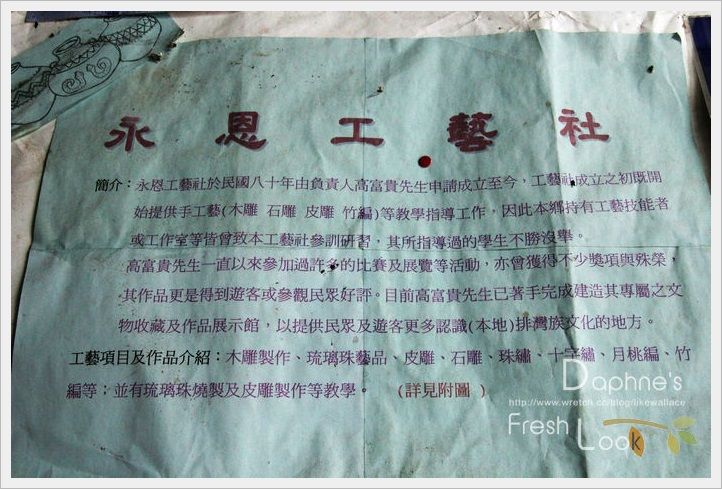 永恩工藝社
簡介：永恩工藝社於民國八十年由負責人高富貴先生申請成立至今，工藝社成立之初既開
始提供手工藝(木雕 石雕 皮雕 竹編)等教學指導工作，因此本鄉持有工藝技能者
或工作室等皆曾致本工藝社參訓研習，其所指導過的學生不勝沒舉。
高富貴先生一直以來參加過許多的比賽及展覽等活動，亦曾獲得不少獎項與殊榮，
其作品更是得到遊客或參觀民眾好評。目前高富貴先生已著手完成建造其專屬之文
物收藏及作品展示館，以提供民眾及遊客更多認識(本地)排灣族文化的地方。
工藝項目及作品介紹：木雕製作、琉璃珠藝品、皮雕、石雕、珠繡、十字繡、月桃編、竹
編等；並有琉璃珠燒製及皮雕製作等教學。 (詳見附圖)
Daphne's
http://www.wretch.cc/blog/likewallace
Fresh Look